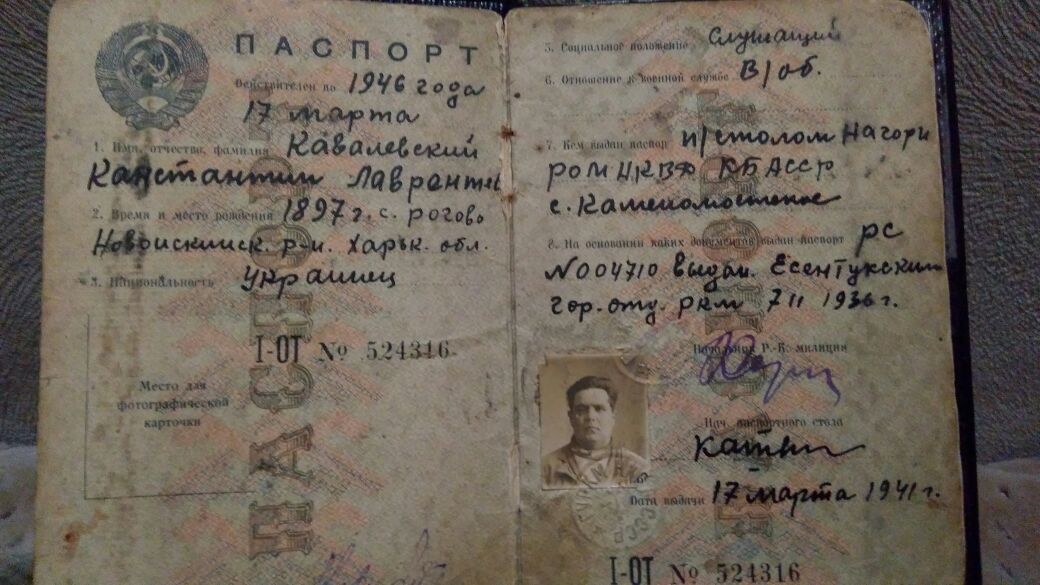 ПАСПОРТ
Действителен по 1946 года
17 марта
1. Имя, отчество, фамилия Кавалевский
Канстантин Лаврентев
2. Время и место рождения 1897 г. с. рогово
р-н. Харьк. обл.
3. Национальность украинец
I-ОТ № 524316
Место для
фотографической
карточки
ПАСПОРТ
5. Социальное положение Служащий
6. Отношение к военной службе В/об.
7. Кем выдан паспорт п/столом Нагорн
РОМ НКВД КБАССР
с. Каменомостское
8. На основании каких документов выдан паспорт рс
N004710 выдан. Есентукским
гор. отд. ркм 7 II 1936 г.
Начальник Р.-К. милиции
Нач. паспортного стола
Дата выдачи 17 марта 1941 г.
I-ОТ № 524316